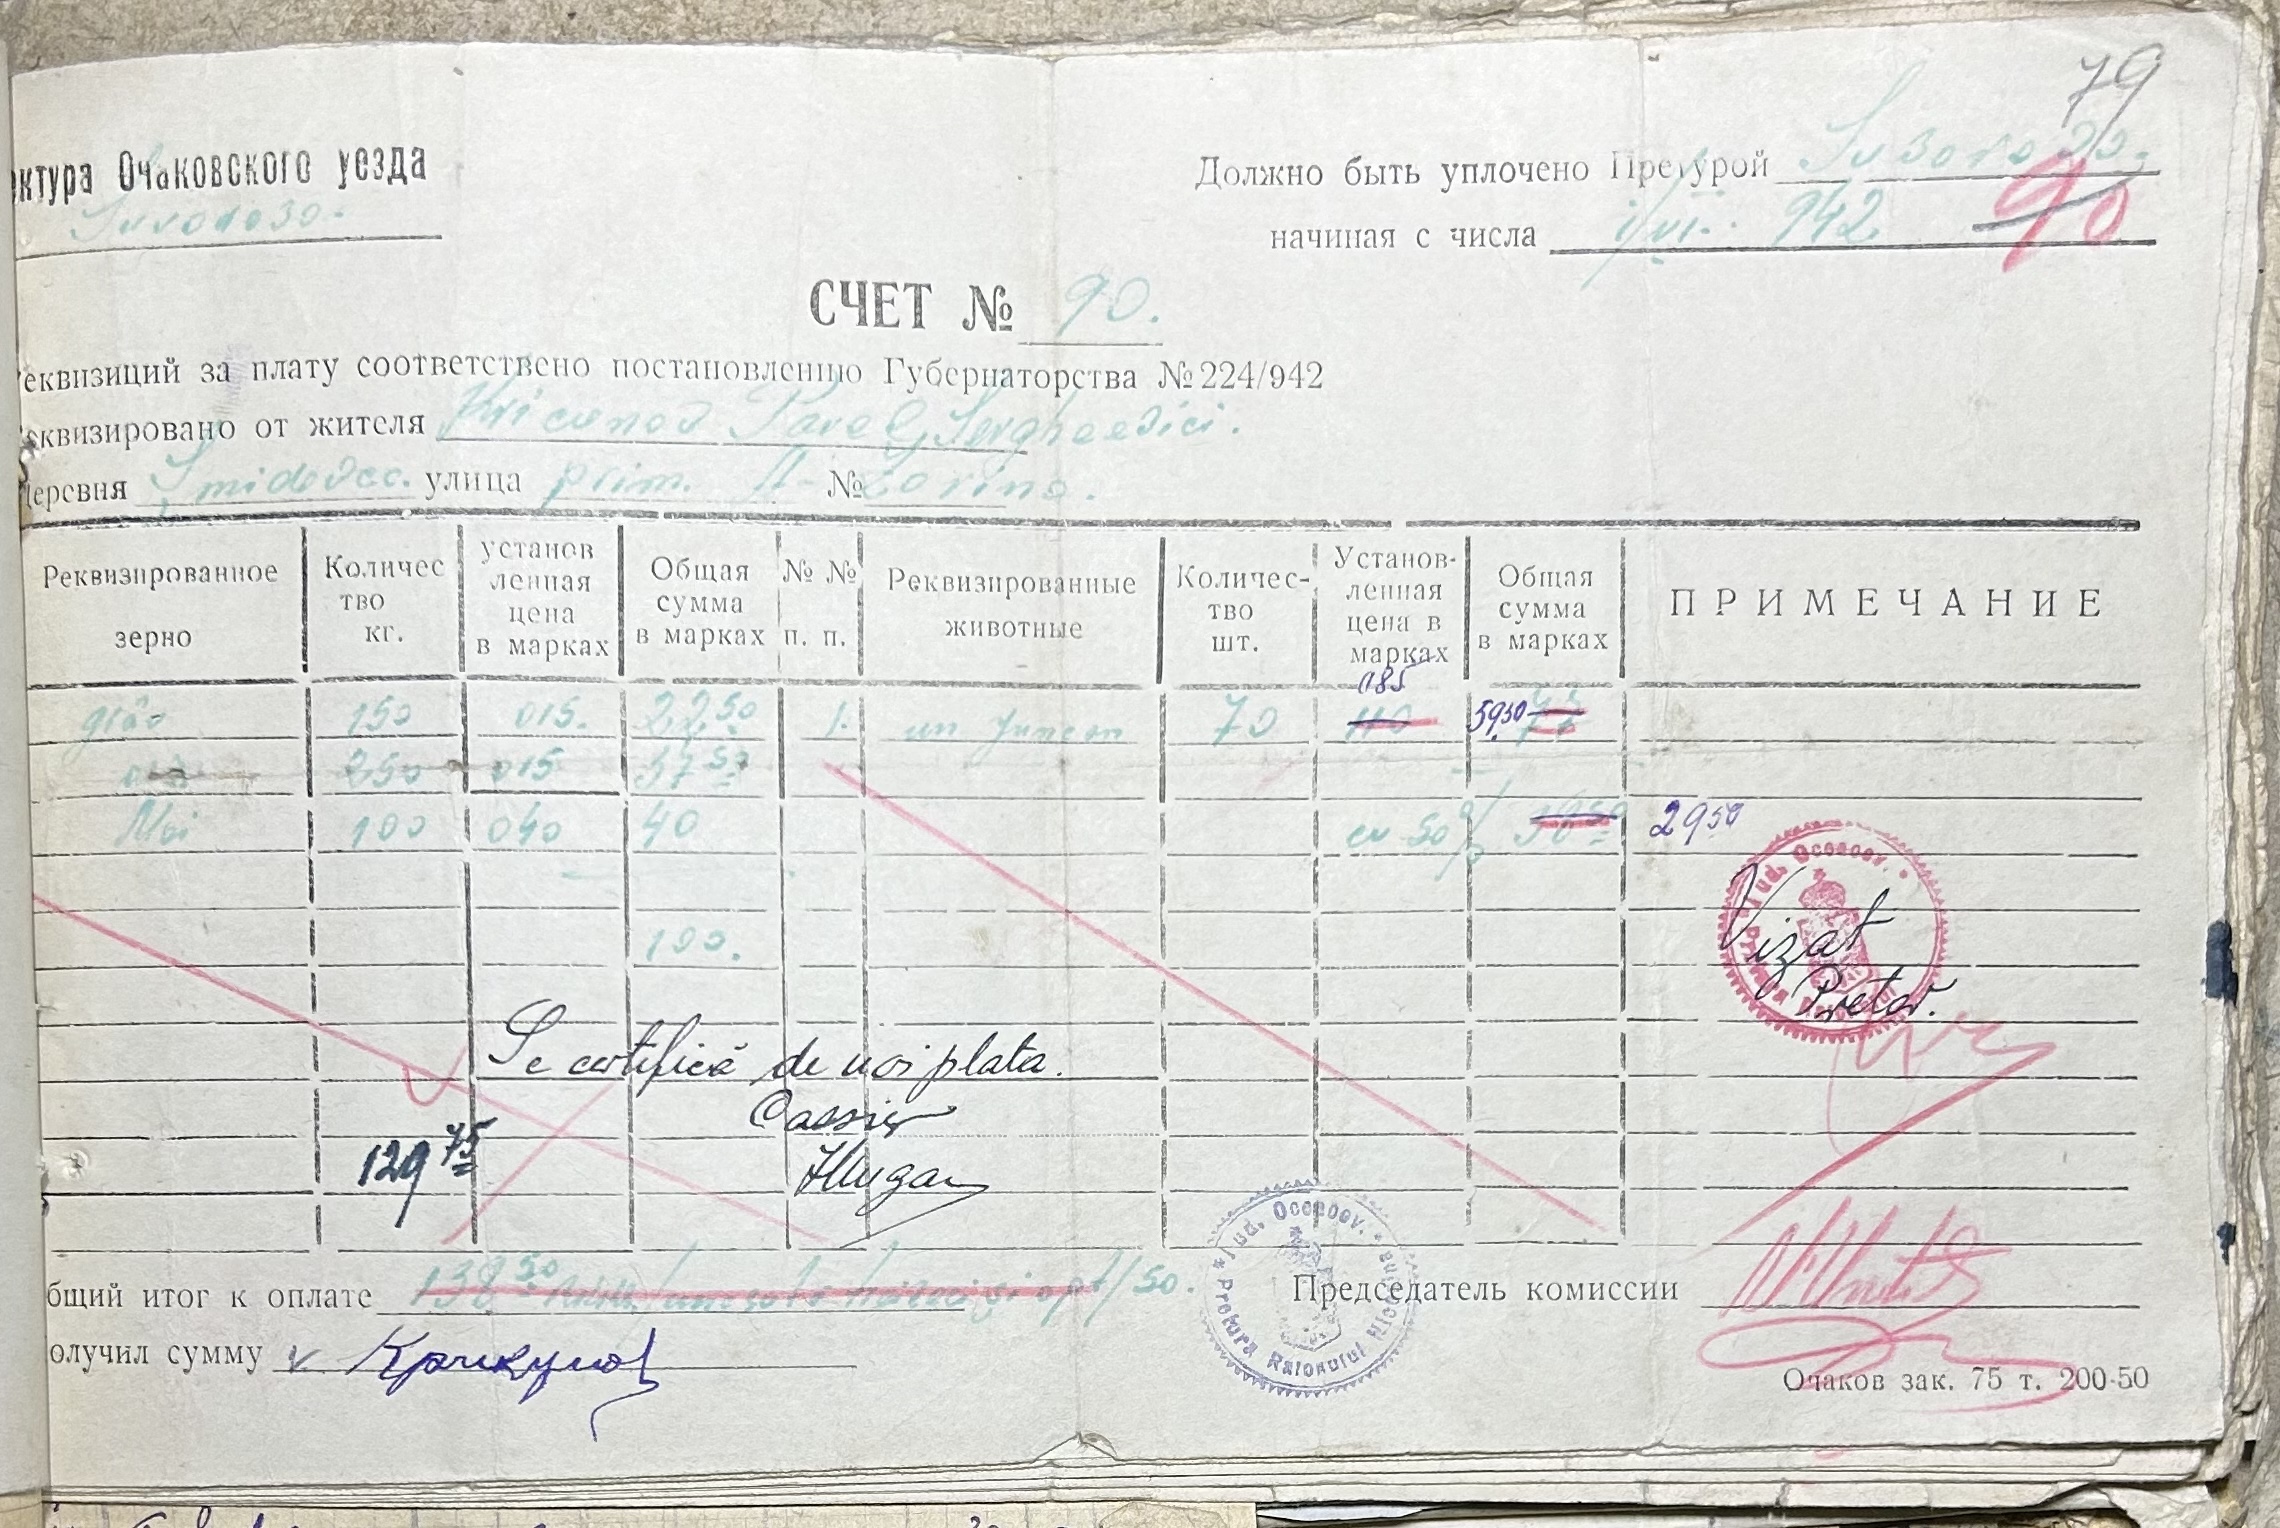 79
ектура Очаковского уезда
Suvorovo.
Должно быть уплочено Претурой Suvorovo.
начиная с числа 1/VI. 942
90
СЧЕТ № 90.
еквизиций за плату соответствено постановлению Губернаторства № 224/942
еквизировано от жителя Kricunov Pavel Sergheevici.
Деревня Smidovcc. улица prim. №
Реквизированное зерно
Количес тво кг.
установ ленная цена в марках
Общая сумма в марках
№ № п. п.
Реквизированные животные
Количес- тво шт.
Установ- ленная цена в марках
Общая сумма в марках
ПРИМЕЧАНИЕ
085
grâu 150 015. 22.50 1. un juncan 70 110 59.50 77
orz 250 015 37 50
Mei 100 040 40 cu 50% 38 50 29 50
100.
Jud. Oceacov. Pretura Raionului
Vizat
Pretor.
Se certifică de noi plata.
Cassier
129 75
бщий итог к оплате 138 50 /50.
Председатель комиссии
олучил сумму v Крикунов
Jud. Oceacov. Pretura Raionului
Очаков зак. 75 т. 200-50